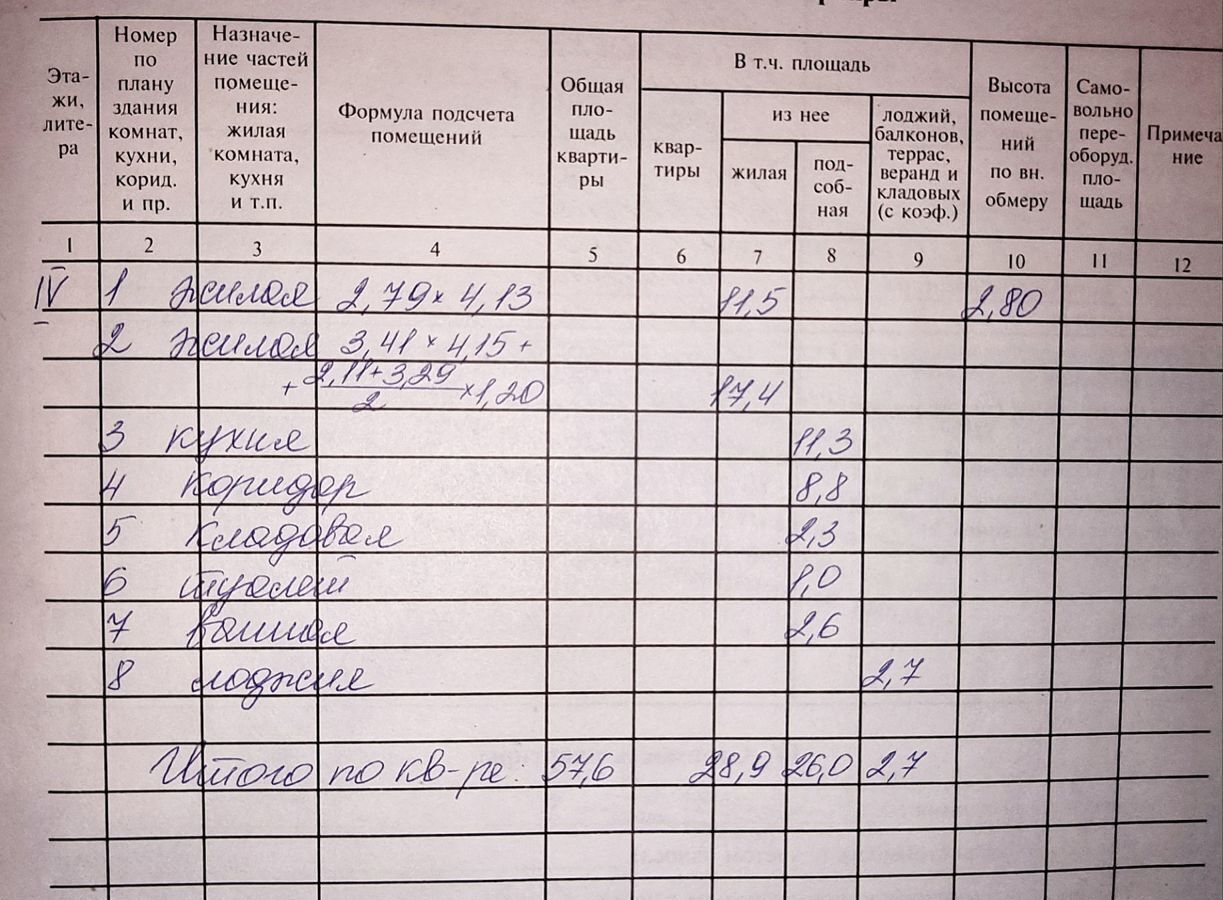 Эта-
жи,
лите-
ра
Номер
по
плану
здания
комнат,
кухни,
корид.
и пр.
Назначе-
ние частей
помеще-
ния:
жилая
комната,
кухня
и т.п.
Формула подсчета
помещений
Общая
пло-
щадь
кварти-
ры
В т.ч. площадь
квар-
тиры
из нее
жилая
под-
соб-
ная
лоджий,
балконов,
террас,
веранд и
кладовых
(с коэф.)
Высота
помеще-
ний
по вн.
обмеру
Само-
вольно
пере-
оборуд.
пло-
щадь
Примеча
ние
1 2 3 4 5 6 7 8 9 10 11 12
IV 1 жилая 2,79 × 4,13 11,5 2,80
2 жилая 3,41 × 4,15 +
+ 2,11+3,29 / 2 × 1,20 17,4
3 кухня 11,3
4 коридор 8,8
5 кладовая 2,3
6 туалет 1,0
7 ванная 2,6
8 лоджия 2,7
Итого по кв-ре: 57,6 28,9 26,0 2,7